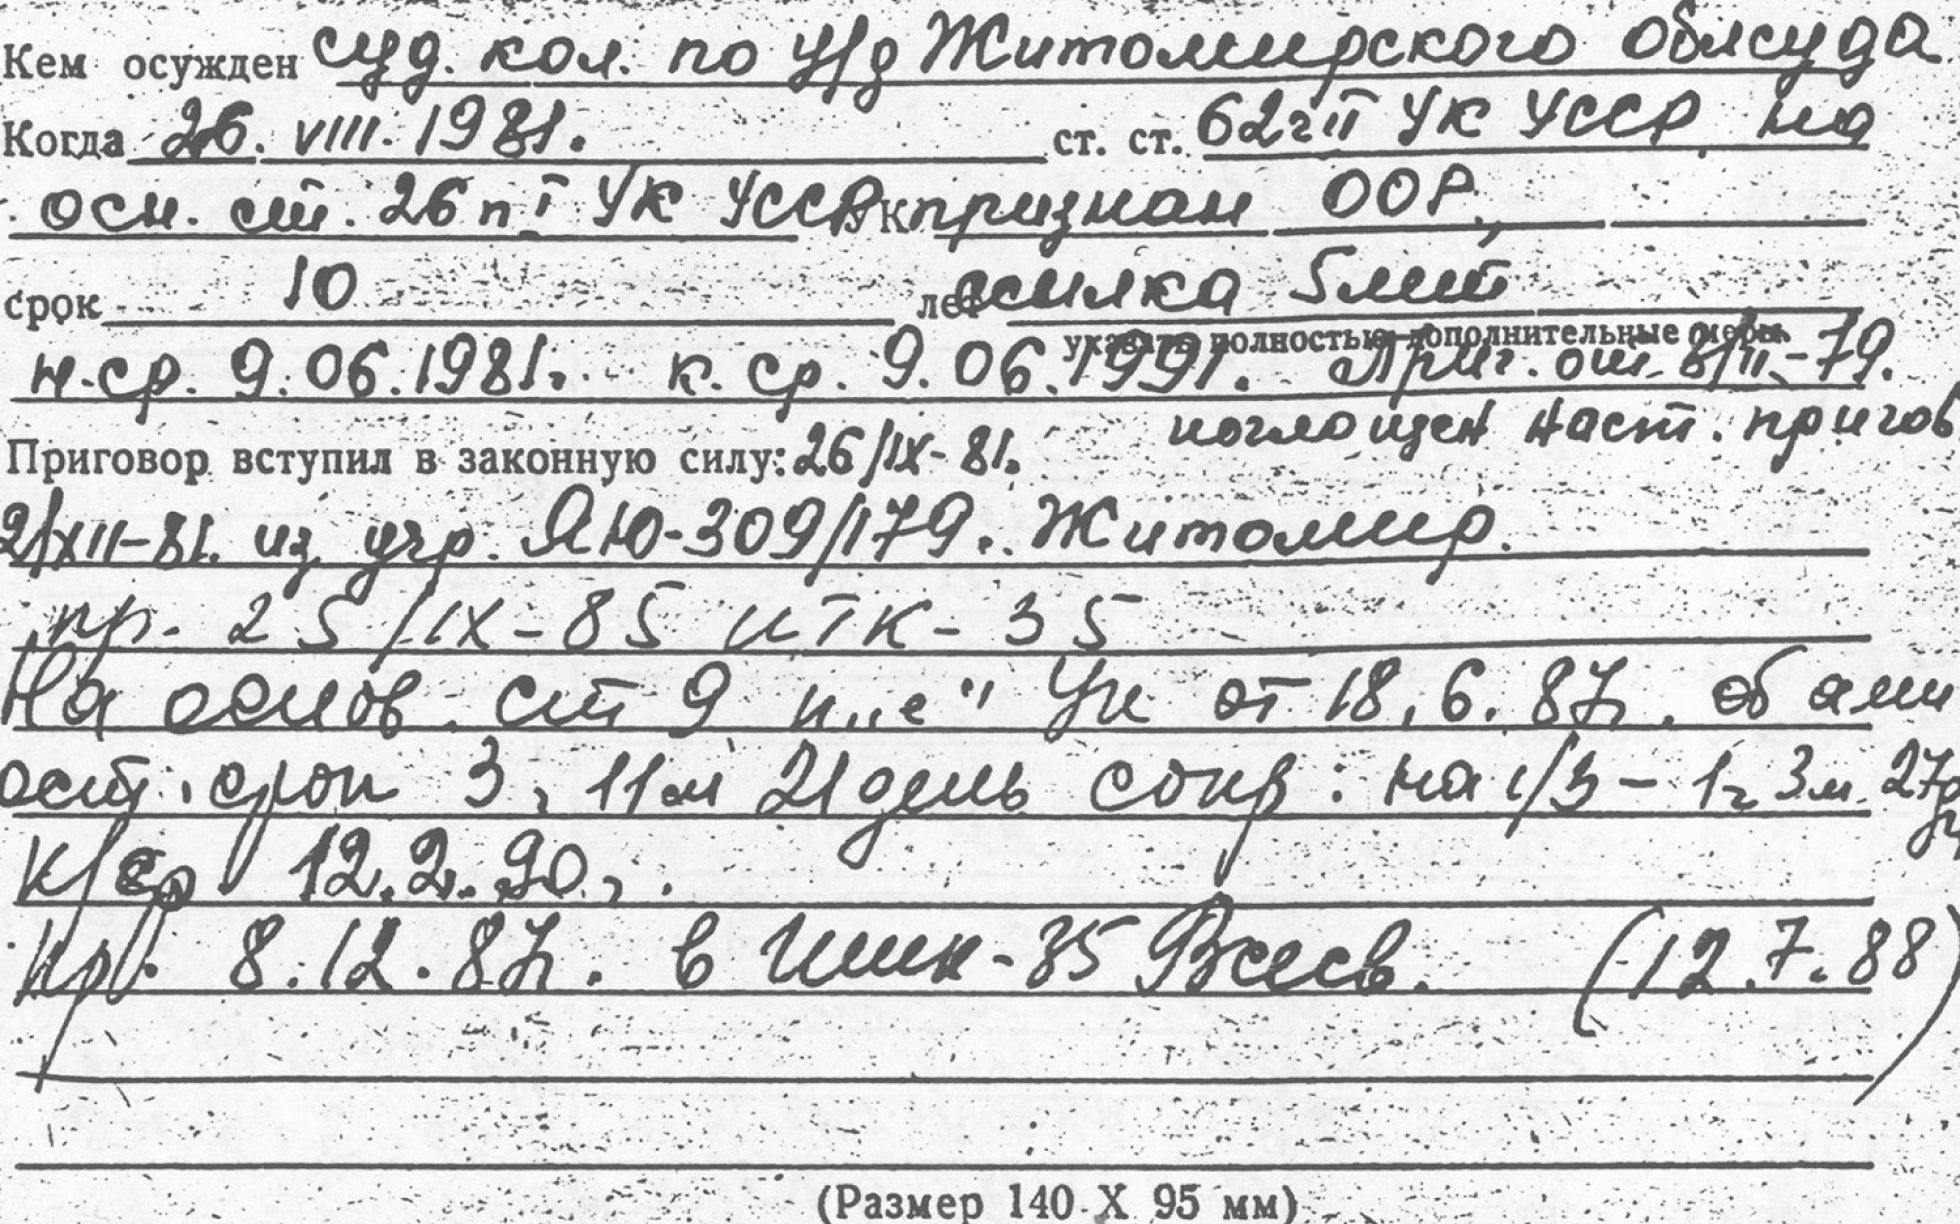 Кем осужден суд. кол. по у/д Житомирского облсуда
Когда 26. VIII. 1981. ст. ст. 62 ч II УК УССР на
осн. ст. 26 п. I УК УССР УК признан ООР,
срок 10 лет ссылка 5 лет
указать полностью дополнительные меры
н.ср. 9.06.1981. к.ср. 9.06.1991. Приг. от 8/II-79.
поглощен наст. пригов
Приговор вступил в законную силу: 26/IX-81.
21/XII-81. из учр. ЯЮ-309/179. Житомир.
пр. 25/IX-85 ИТК-35
На основ. ст 9 п. "е" Ук от 18.6.87г. об амн
ост. срок 3г 11м 21день сокр: на 1/3 - 1г 3м. 27д
к/ср 12.2.90г.
Пр. 8.12.87г. в ИТК-35 Всесв. (12.7.88)
(Размер 140 X 95 мм)